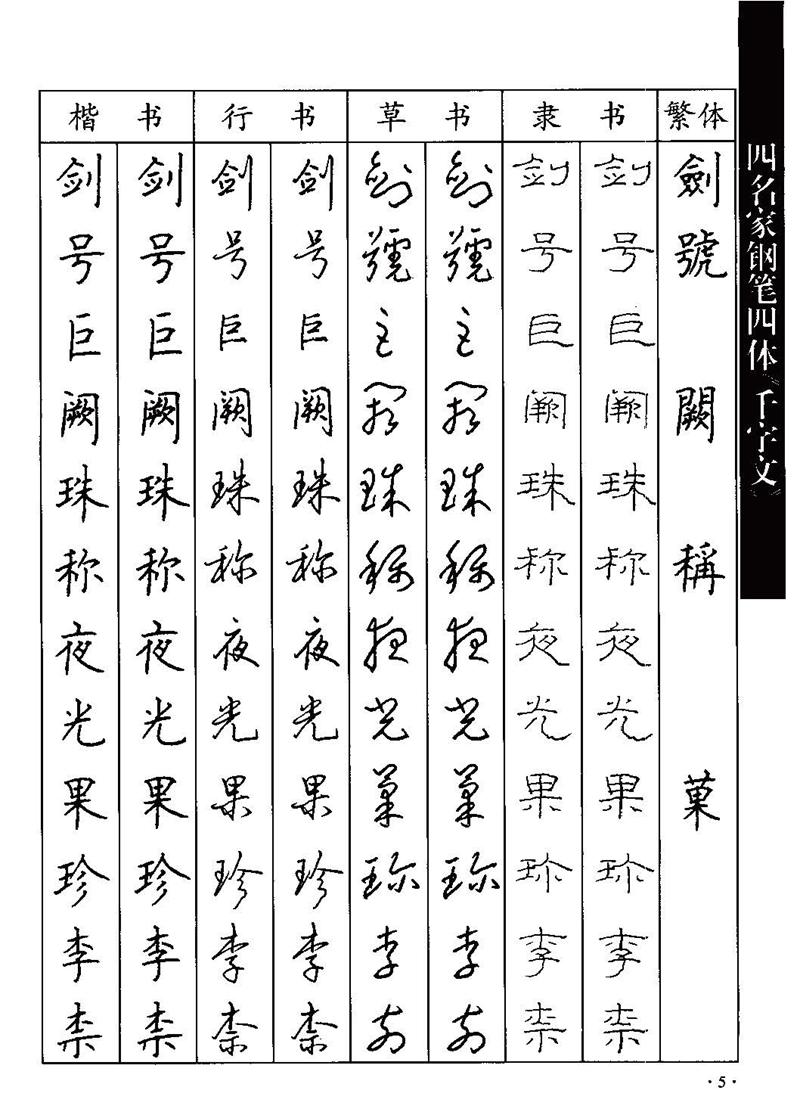 四名家钢笔四体《千字文》
楷书 行书 草书 隶书 繁体
剑 剑 剑 剑 剑 剑 剑 剑 劍
号 号 号 号 號 號 号 号 號
巨 巨 巨 巨 巨 巨 巨 巨
阙 阙 阙 阙 阙 阙 阙 阙 闕
珠 珠 珠 珠 珠 珠 珠 珠
称 称 称 称 称 称 称 称 稱
夜 夜 夜 夜 夜 夜 夜 夜
光 光 光 光 光 光 光 光
果 果 果 果 菓 菓 果 果 菓
珍 珍 珍 珍 珍 珍 珍 珍
李 李 李 李 李 李 李 李
柰 柰 柰 柰 柰 柰 柰 柰
·5·